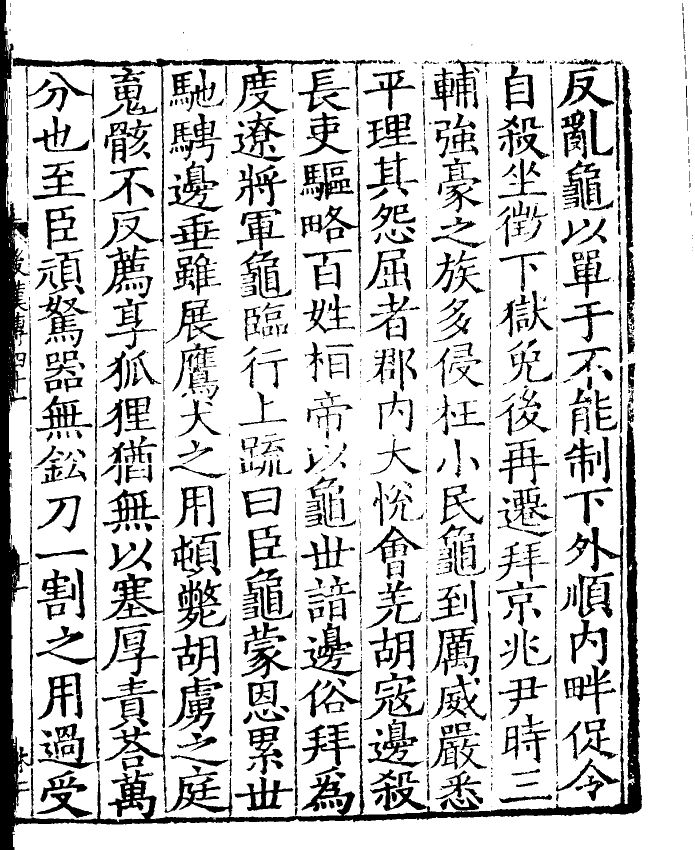 反亂龜以單于不能制下外順内畔促令
自殺坐徵下獄免後再遷拜京兆尹時三
輔強豪之族多侵枉小民龜到厲威嚴悉
平理其怨屈者郡内大恱會羌胡寇邊殺
長吏驅略百姓桓帝以龜世諳邊俗拜爲
度遼將軍龜臨行上䟽曰臣龜蒙恩累世
馳騁邊垂雖展鷹犬之用頓斃胡虜之庭
䰟骸不反薦享狐狸猶無以塞厚責荅萬
分也至臣頑駑器無鈆刀一割之用過受
後漢傳四十一